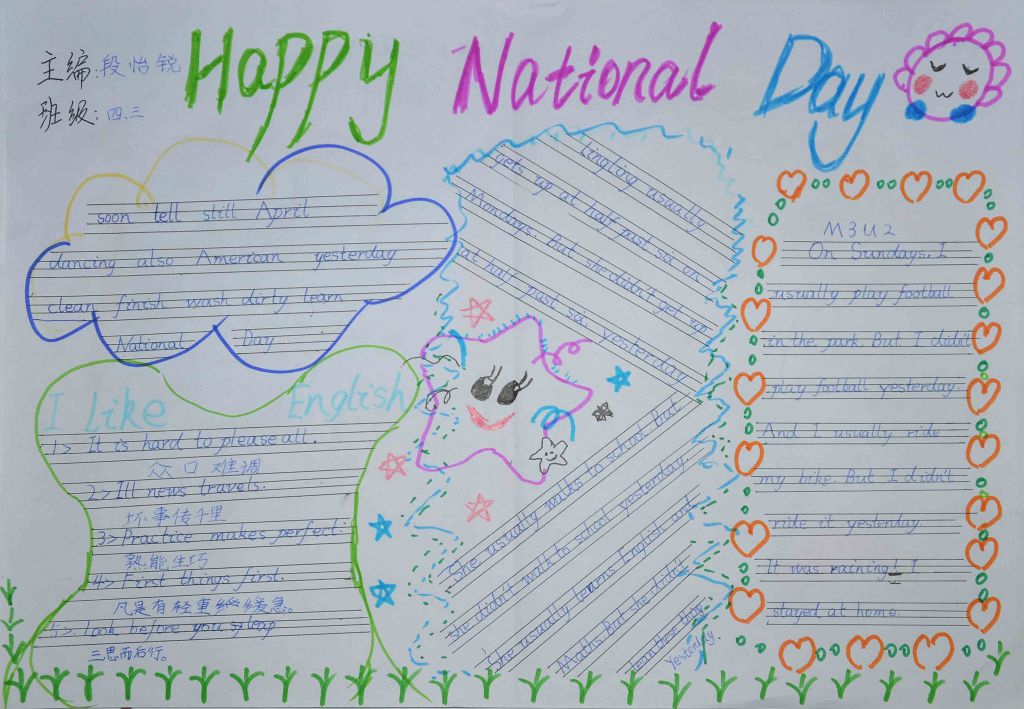 Happy National Day
主编:段怡锐
班级:四.三
soon tell still April
dancing also American yesterday
clean finish wash dirty learn
National Day
I like English
1> It is hard to please all.
众口难调
2> Ill news travels.
坏事传千里
3> Practice makes perfect.
熟能生巧
4> First things first.
凡是有轻重缓急。
5>. look before you leap
三思而后行。
lingling usually
gets up at half past six on
Mondays. But she didn't get up
at half past six yesterday
She usually walks to school. But
she didn't walk to school yesterday.
She usually learns English and
Maths. But she didn't
learn these thing
Yesterday.
M3U2
On Sundays, I
usually play football
in the park But I didn't
play football yesterday.
And I usually ride
my bike. But I didn't
ride it yesterday.
It was raining! I
stayed at home